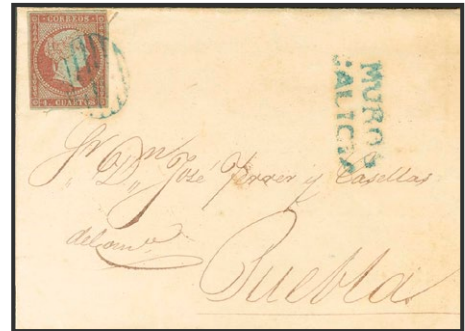 CORREOS
4 CUARTOS
MUROS
GALICIA
Sr. Dn. José Ferrer y Casellas
Puebla